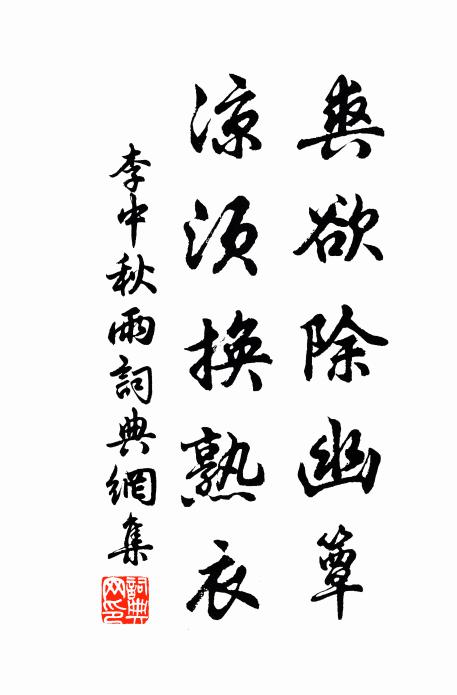 爽欲除幽簟
涼須換熟衣
李中秋雨詞典網集
詞典網印